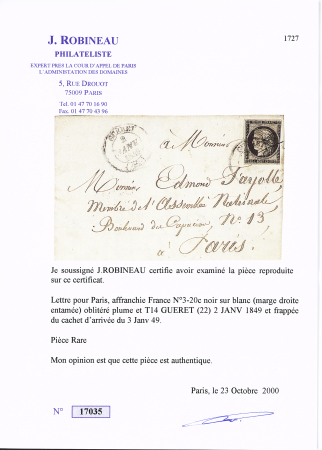 J. ROBINEAU
1727
PHILATELISTE
EXPERT PRÈS LA COUR D'APPEL DE PARIS
L'ADMINISTATION DES DOMAINES
5, RUE DROUOT
75009 PARIS
Tel. 01 47 70 16 90
Fax. 01 47 70 43 96
GUERET
2
JANV
à Monsieur
Monsieur Edmond Fayolle
Membre de l'Assemblée Nationale
Boulevard des Capucines, N° 13
à Paris.
Je soussigné J.ROBINEAU certifie avoir examiné la pièce reproduite
sur ce certificat.
Lettre pour Paris, affranchie France N°3-20c noir sur blanc (marge droite
entamée) oblitéré plume et T14 GUERET (22) 2 JANV 1849 et frappée
du cachet d'arrivée du 3 Janv 49.
Pièce Rare
Mon opinion est que cette pièce est authentique.
Paris, le 23 Octobre 2000
N° 17035